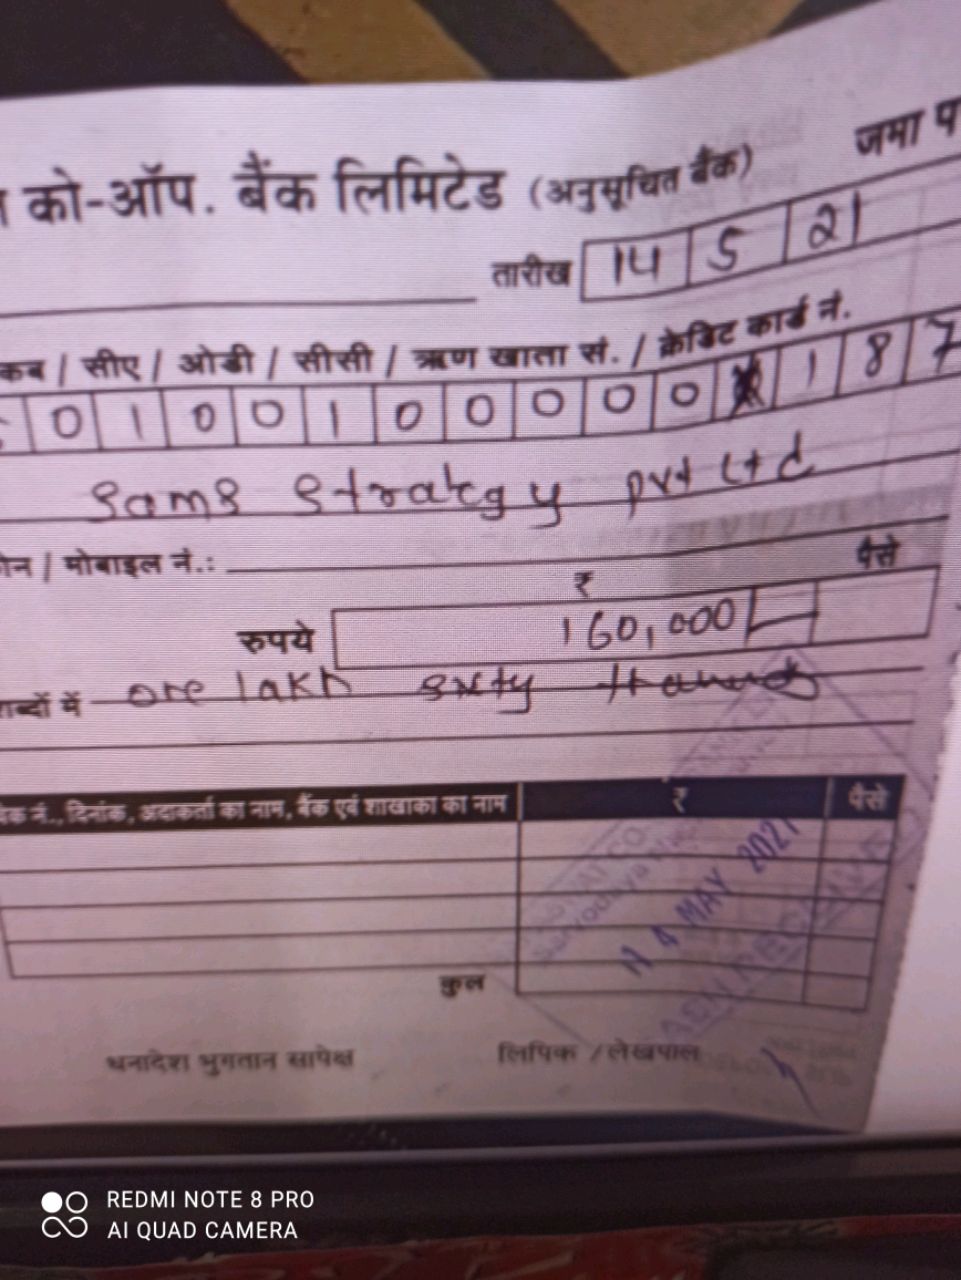 को-ऑप. बैंक लिमिटेड (अनुसूचित बैंक) जमा प
तारीख 14 5 21
कब / सीए / ओडी / सीसी / ऋण खाता सं. / क्रेडिट कार्ड नं.
0 1 0 0 1 0 0 0 0 0 1 8 7
Sams Strategy Pvt Ltd
ोन / मोबाइल नं.:
₹ पैसे
रुपये 160,000
शब्दों में one lakh sixty
चेक नं., दिनांक, अदाकर्ता का नाम, बैंक एवं शाखाका का नाम ₹ पैसे
कुल
धनादेश भुगतान सापेक्ष लिपिक / लेखपाल
MAY 2021
REDMI NOTE 8 PRO
AI QUAD CAMERA